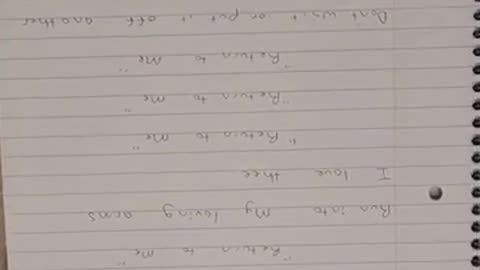 "Return to me"
Run into my loving arms
I love thee
"Return to me"
"Return to me"
"Return to me"
Don't wait or put it off another